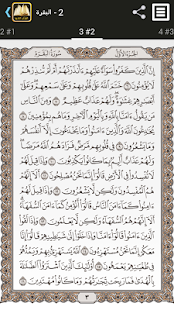 2 - البقرة
2 #1
3 #2
4 #3
سُورَةُ البَقَرَةِ
الجُزْءُ الأَوَّلُ
إِنَّ ٱلَّذِينَ كَفَرُواْ سَوَآءٌ عَلَيْهِمْ ءَأَنذَرْتَهُمْ أَمْ لَمْ تُنذِرْهُمْ
لَا يُؤْمِنُونَ ٦ خَتَمَ ٱللَّهُ عَلَىٰ قُلُوبِهِمْ وَعَلَىٰ سَمْعِهِمْ وَعَلَىٰٓ أَبْصَٰرِهِمْ غِشَٰوَةٌ
وَلَهُمْ عَذَابٌ عَظِيمٌ ٧ وَمِنَ ٱلنَّاسِ مَن يَقُولُ ءَامَنَّا بِٱللَّهِ وَبِٱلْيَوْمِ ٱلْأَخِرِ
وَمَا هُم بِمُؤْمِنِينَ ٨ يُخَٰدِعُونَ ٱللَّهَ وَٱلَّذِينَ ءَامَنُواْ وَمَا يَخْدَعُونَ
إِلَّآ أَنفُسَهُمْ وَمَا يَشْعُرُونَ ٩ فِي قُلُوبِهِم مَّرَضٌ فَزَادَهُمُ ٱللَّهُ مَرَضًا
وَلَهُمْ عَذَابٌ أَلِيمٌ بِمَا كَانُواْ يَكْذِبُونَ ١٠ وَإِذَا قِيلَ لَهُمْ
لَا تُفْسِدُواْ فِي ٱلْأَرْضِ قَالُوٓاْ إِنَّمَا نَحْنُ مُصْلِحُونَ ١١ أَلَآ إِنَّهُمْ
هُمُ ٱلْمُفْسِدُونَ وَلَٰكِن لَّا يَشْعُرُونَ ١٢ وَإِذَا قِيلَ لَهُمْ ءَامِنُواْ
كَمَآ ءَامَنَ ٱلنَّاسُ قَالُوٓاْ أَنُؤْمِنُ كَمَآ ءَامَنَ ٱلسُّفَهَآءُ أَلَآ إِنَّهُمْ هُمُ
ٱلسُّفَهَآءُ وَلَٰكِن لَّا يَعْلَمُونَ ١٣ وَإِذَا لَقُواْ ٱلَّذِينَ ءَامَنُواْ قَالُوٓاْ ءَامَنَّا
وَإِذَا خَلَوْاْ إِلَىٰ شَيَٰطِينِهِمْ قَالُوٓاْ إِنَّا مَعَكُمْ إِنَّمَا نَحْنُ
مُسْتَهْزِءُونَ ١٤ ٱللَّهُ يَسْتَهْزِئُ بِهِمْ وَيَمُدُّهُمْ فِي
طُغْيَٰنِهِمْ يَعْمَهُونَ ١٥ أُوْلَٰٓئِكَ ٱلَّذِينَ ٱشْتَرَوُاْ ٱلضَّلَٰلَةَ
بِٱلْهُدَىٰ فَمَا رَبِحَت تِّجَٰرَتُهُمْ وَمَا كَانُواْ مُهْتَدِينَ ١٦
٣